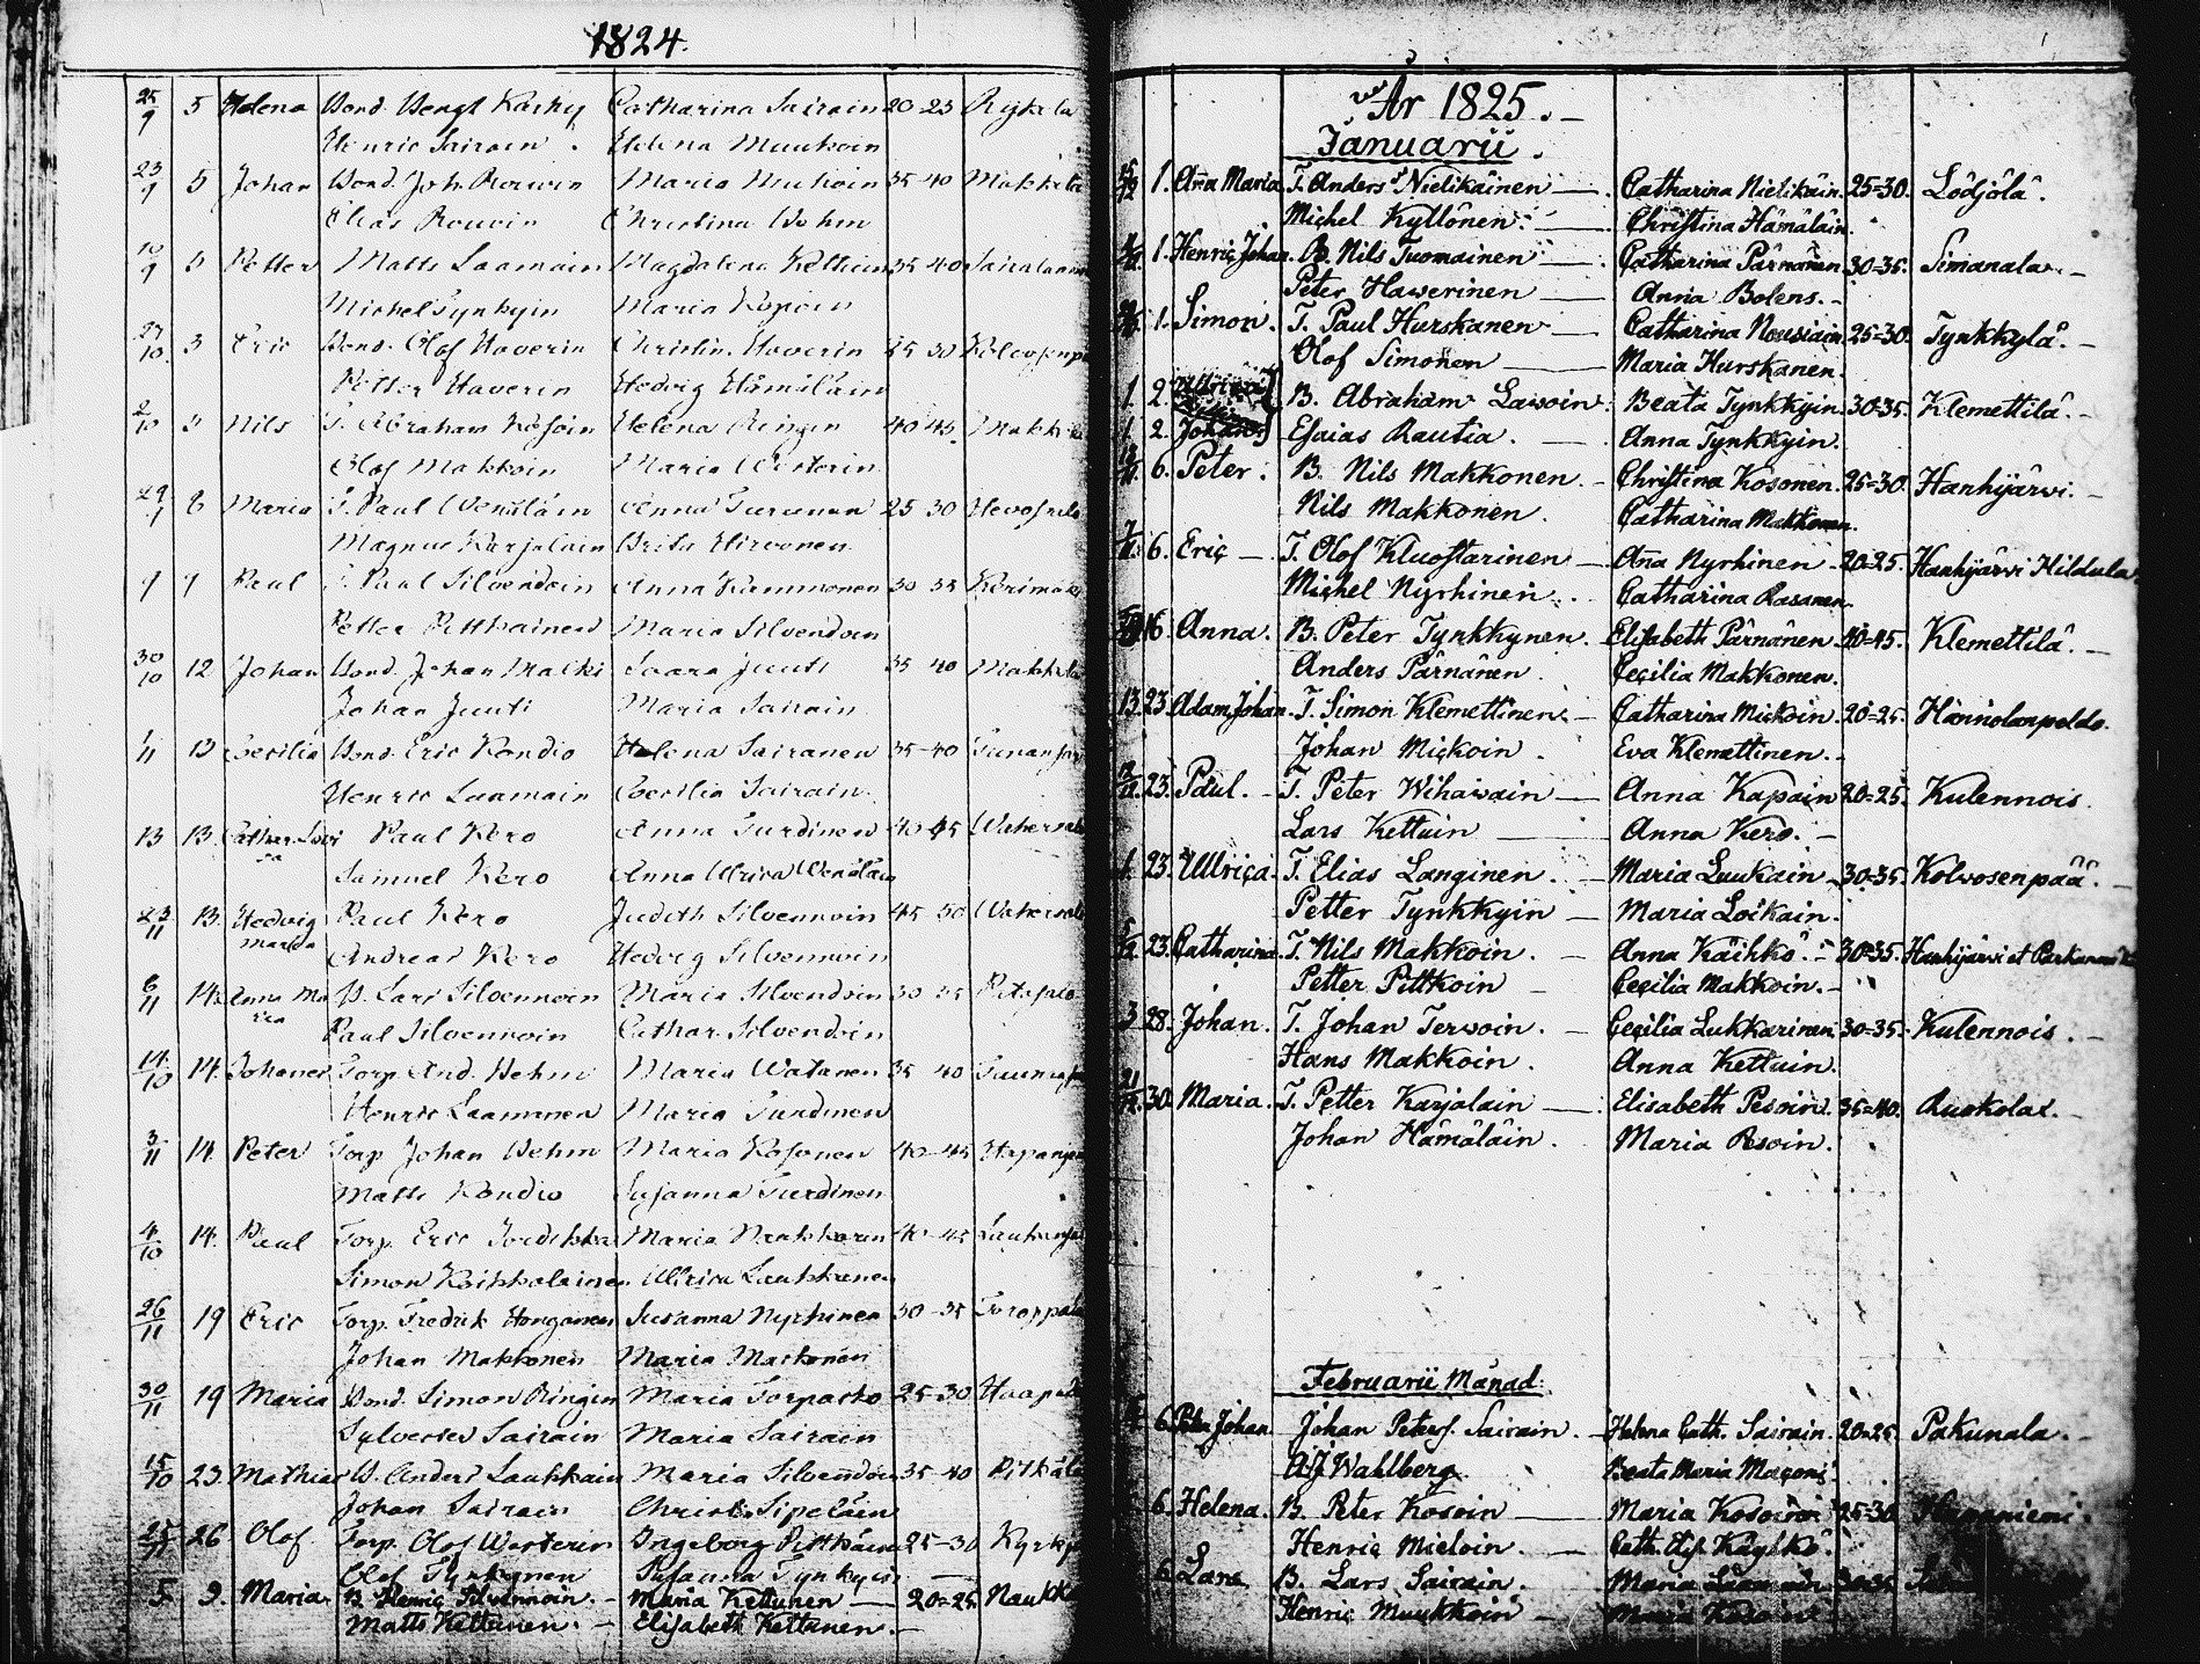 1824.
25/9 5 Helena Bond. Bengt Kaihy Catharina Sairain 20-25
Henric Sairain Helena Muukoin
23/9 5 Johan Bond. Joh. Rouvin Maria Muukoin 35-40 Makkila
Elias Rouvin Christina Behm
10/9 5 Petter Matts Laamain Magdalena 35 40
Michel Tynkyin Maria
27/10 3 Eric Bond. Olof Haverin Christin. Haverin 25 30
Petter Haverin Hedvig Hämäläin
2/10 Nils T. Abraham Kosoin Helena Ringin 40 45 Makkila
Olof Makkoin Maria Westerin
29 6 Maria T. Paul Wenäläin Anna Turunen 25 30
Magnus Karjalain Brita Hirvonen
9 9 Paul T. Paul Silvendoin Anna Kammonen 30 35 Kerimäki
Petter Pitthainen Maria Silvendoin
30/10 12 Johan Bond. Johan Malki Saara Juuti 35 40 Makkila
Johan Juuti Maria Sairain
1/11 13 Cecilia Bond. Eric Kondio Helena Sairanen 35-40
Henric Laamain Cecilia Sairain
13 13. Cathar. Lovisa Paul Kero Anna Turdinen 40-45
Samuel Kero Anna Ulrica Wenäläin
23/11 13. Hedvig Maria Paul Kero Judith Silvennoin 45-50
Andreas Kero Hedvig Silvennoin
6/11 14. Anna Maria B. Lars Silvennoin Maria Silvendoin 30 35
Paul Silvennoin Cathar. Silvendoin
14/10 14. Johanes Torp. And. Behm Maria Watanen 35 40
Henric Laamanen Maria Turdinen
3/11 14. Peter Torp. Johan Behm Maria Kosonen 40-45
Matts Kondio Susanna Turdinen
4/10 14. Paul Torp. Eric Maria Naukkarin 40-45
Simon Koikkalainen Ullrica Laukkanen
26/11 19 Eric Torp. Fredrik Hongonen Susanna Nyrhinen 30-35
Johan Makkonen Maria Makkonen
30/11 19 Maria Bond. Simon Ringin Maria Torpacko 25-30
Sylvester Sairain Maria Sairain
15/10 23. Mathias B. Anders Laukkain Maria Silvendoin 35-40
Johan Sairain Christ. Sipeläin
25/11 26 Olof Torp. Olof Westerin Ingeborg Pitkäin 25-30
Olof Tynkynen Susanna Tynkyin
5 9. Maria. B. Henric Silvennoin. Maria Kettunen 20=25
Matts Kettunen. Elisabeth Kettunen.
År 1825.
Januarii.
15/12 1. Anna Maria T. Anders Nielikäinen Catharina Nielikäin. 25=30. Lödjölä.
Michel Kyllönen. Christina Hämäläin.
1. Henric Johan. B. Nils Tuomainen Catharina Pärnänen 30=35. Simanala.
Peter Hawerinen Anna Bolens.
1. Simon. T. Paul Hurskanen Catharina Nousiain. 25=30. Tynkkylä.
Olof Simonen Maria Hurskanen.
1. 2. B. Abraham Lawoin. Beata Tynkkyin. 30=35. Klemettilä.
1. 2. Johan Esaias Rautia. Anna Tynkkyin.
6. Peter. B. Nils Makkonen. Christina Kosonen. 25=30. Hanhijärwi.
Nils Makkonen. Catharina Makkonen.
6. Eric T. Olof Kluostarinen Anna Nyrhinen 20=25. Hanhijärwi Hildula
Michel Nyrhinen. Catharina Rasanen
16. Anna. B. Peter Tynkkynen. Elisabeth Pärnänen 40=45. Klemettilä.
Anders Pärnänen. Cecilia Makkonen.
13. 23. Adam Johan. T. Simon Klemettinen. Catharina Mickoin. 20=25. Hännolanpeldo.
Johan Mickoin. Eva Klemettinen.
12/12. 23. Paul. T. Peter Wihawain Anna Kapain 20=25. Kulennois.
Lars Kettuin Anna Kero.
1. 23. Ullrica. T. Elias Langinen. Maria Luukain 30=35. Kolwosenpää.
Petter Tynkkyin Maria Loikain.
23. Catharina. T. Nils Makkoin. Anna Käihkö. 30=35. Hanhijärwi et
Petter Pittkoin Cecilia Makkoin.
3 28. Johan. T. Johan Terwoin. Cecilia Lukkarinen 30=35. Kulennois.
Hans Makkoin. Anna Kettuin.
21/12. 30. Maria. T. Petter Karjalain Elisabeth Pesoin. 35=40. Ruokolax.
Johan Hämäläin. Maria Pesoin.
Februarii Månad.
6. Peter Johan Johan Peters. Sairain. Helena Cath. Sairain. 20=25. Pakunala.
A.J. Wahlberg. Beata Maria
6. Helena. B. Peter Kosoin Maria 25=30
Henric Mieloin.
6. Lars B. Lars Sairain. Maria 30=35
Henric Muukkoin Maria Kosoin